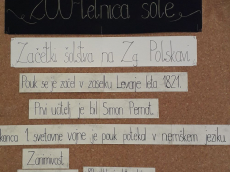 200-letnica šole
Začetki šolstva na Zg. Polskavi
Pouk se je začel v zaselku Levarje leta 1821.
Prvi učitelj je bil Simon Pernat.
konca 1. svetovne vojne je pouk potekal v nemškem jeziku.
Zanimivost: